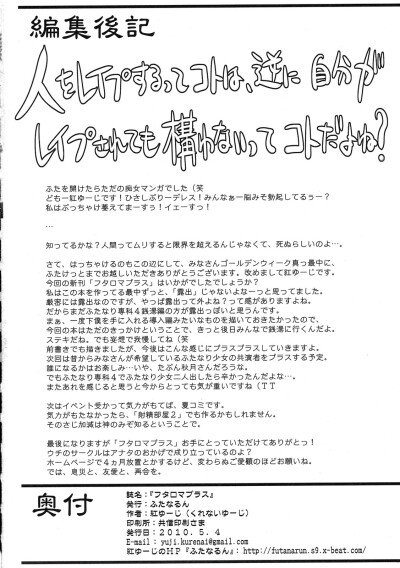 編集後記
人をレイプするってコトは、逆に 自分が
レイプされても 構わないって コトだよね?
ふたを開けたらただの痴女マンガでした(笑
ども一紅ゆーじです!ひさしぶりーデレス!みんなぁー脳みそ勃起してるぅー?
私はぶっちゃけ萎えてまーすぅ!イェーすっ!
…
知ってるかな?人間ってムリすると限界を超えるんじゃなくて、死ぬらしいのよ…。
さて、はっちゃけるのもこの辺にして、みなさんゴールデンウィーク真っ最中に、
ふたけっとまでお越しいただきありがとうございます。改めまして紅ゆーじです。
今回の新刊「フタロマプラス」はいかがでしたでしょうか?
私はこの本を作ってる最中ずっと、「露出」じゃないよなーっと思ってました。
厳密には露出なのですが、やっぱ露出って外よね?って感がありますよね。
だからまだふたなり専科4銭湯編の方が露出っぽいと思うんです。
まぁ、一度下僕を手に入れる導入編みたいなものを描いておきたかったので、
今回の本はただのきっかけということで、きっと後日みんなで銭湯に行くんだよ。
ステキだね。でも妄想で我慢してね(笑
前書きでも描きましたが、今後はこんな感じにプラスプラスしていきますよ。
次回は昔からみなさんが希望しているふたなり少女の共演者をプラスする予定。
誰になるかはお楽しみ…いや、たぶん秋月さんだろうな。
でもふたなり専科4でふたなり少女二人出したら辛かったんだよな…。
またあれを感じると思うと今からとっても気が重いですね(TT
次はイベント受かって気力がもてば、夏コミです。
気力がもたなかったら、「射精部屋2」でも作るかもしれません。
そのさじ加減は神のみぞ知るということで。
最後になりますが「フタロマプラス」お手にとっていただけてありがとっ!
ウチのサークルはアナタのおかげで成り立っているのよ?
ホームページで4ヵ月放置とかするけど、変わらぬご愛顧のほどお願いね。
では、息災と、友愛と、再会を。
奥付
誌名:『フタロマプラス』
発行:ふたなるん
作者:紅ゆーじ(くれないゆーじ)
印刷所:共信印刷さま
発行日:2010.5.4
E-mail: yuji.kurenai@gmail.com
紅ゆーじのHP『ふたなるん』:http://futanarun.s9.x-beat.com/